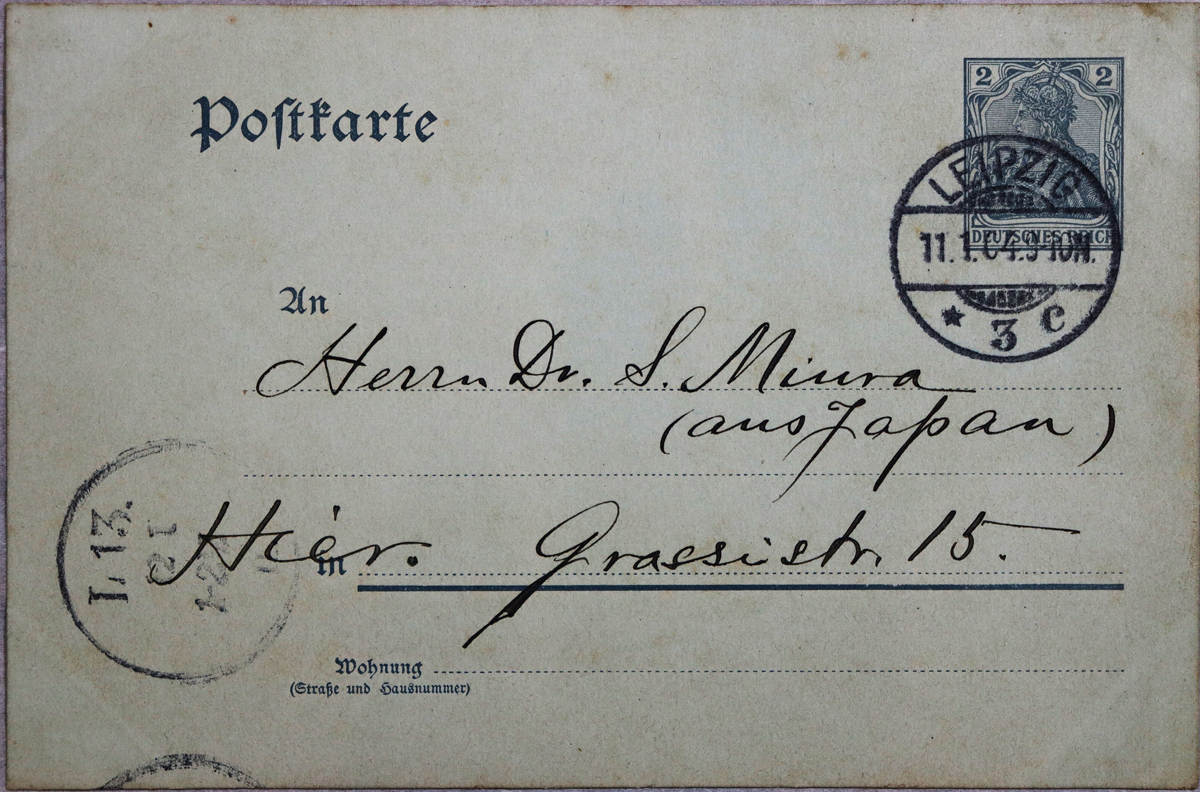 Postkarte
2 2
DEUTSCHES REICH
LEIPZIG
11.1.04.9-10N.
* 3 c
An
Herrn Dr. S. Miura
(aus Japan)
Hier. Grassistr. 15.
in
L. 13.
Wohnung
(Straße und Hausnummer)